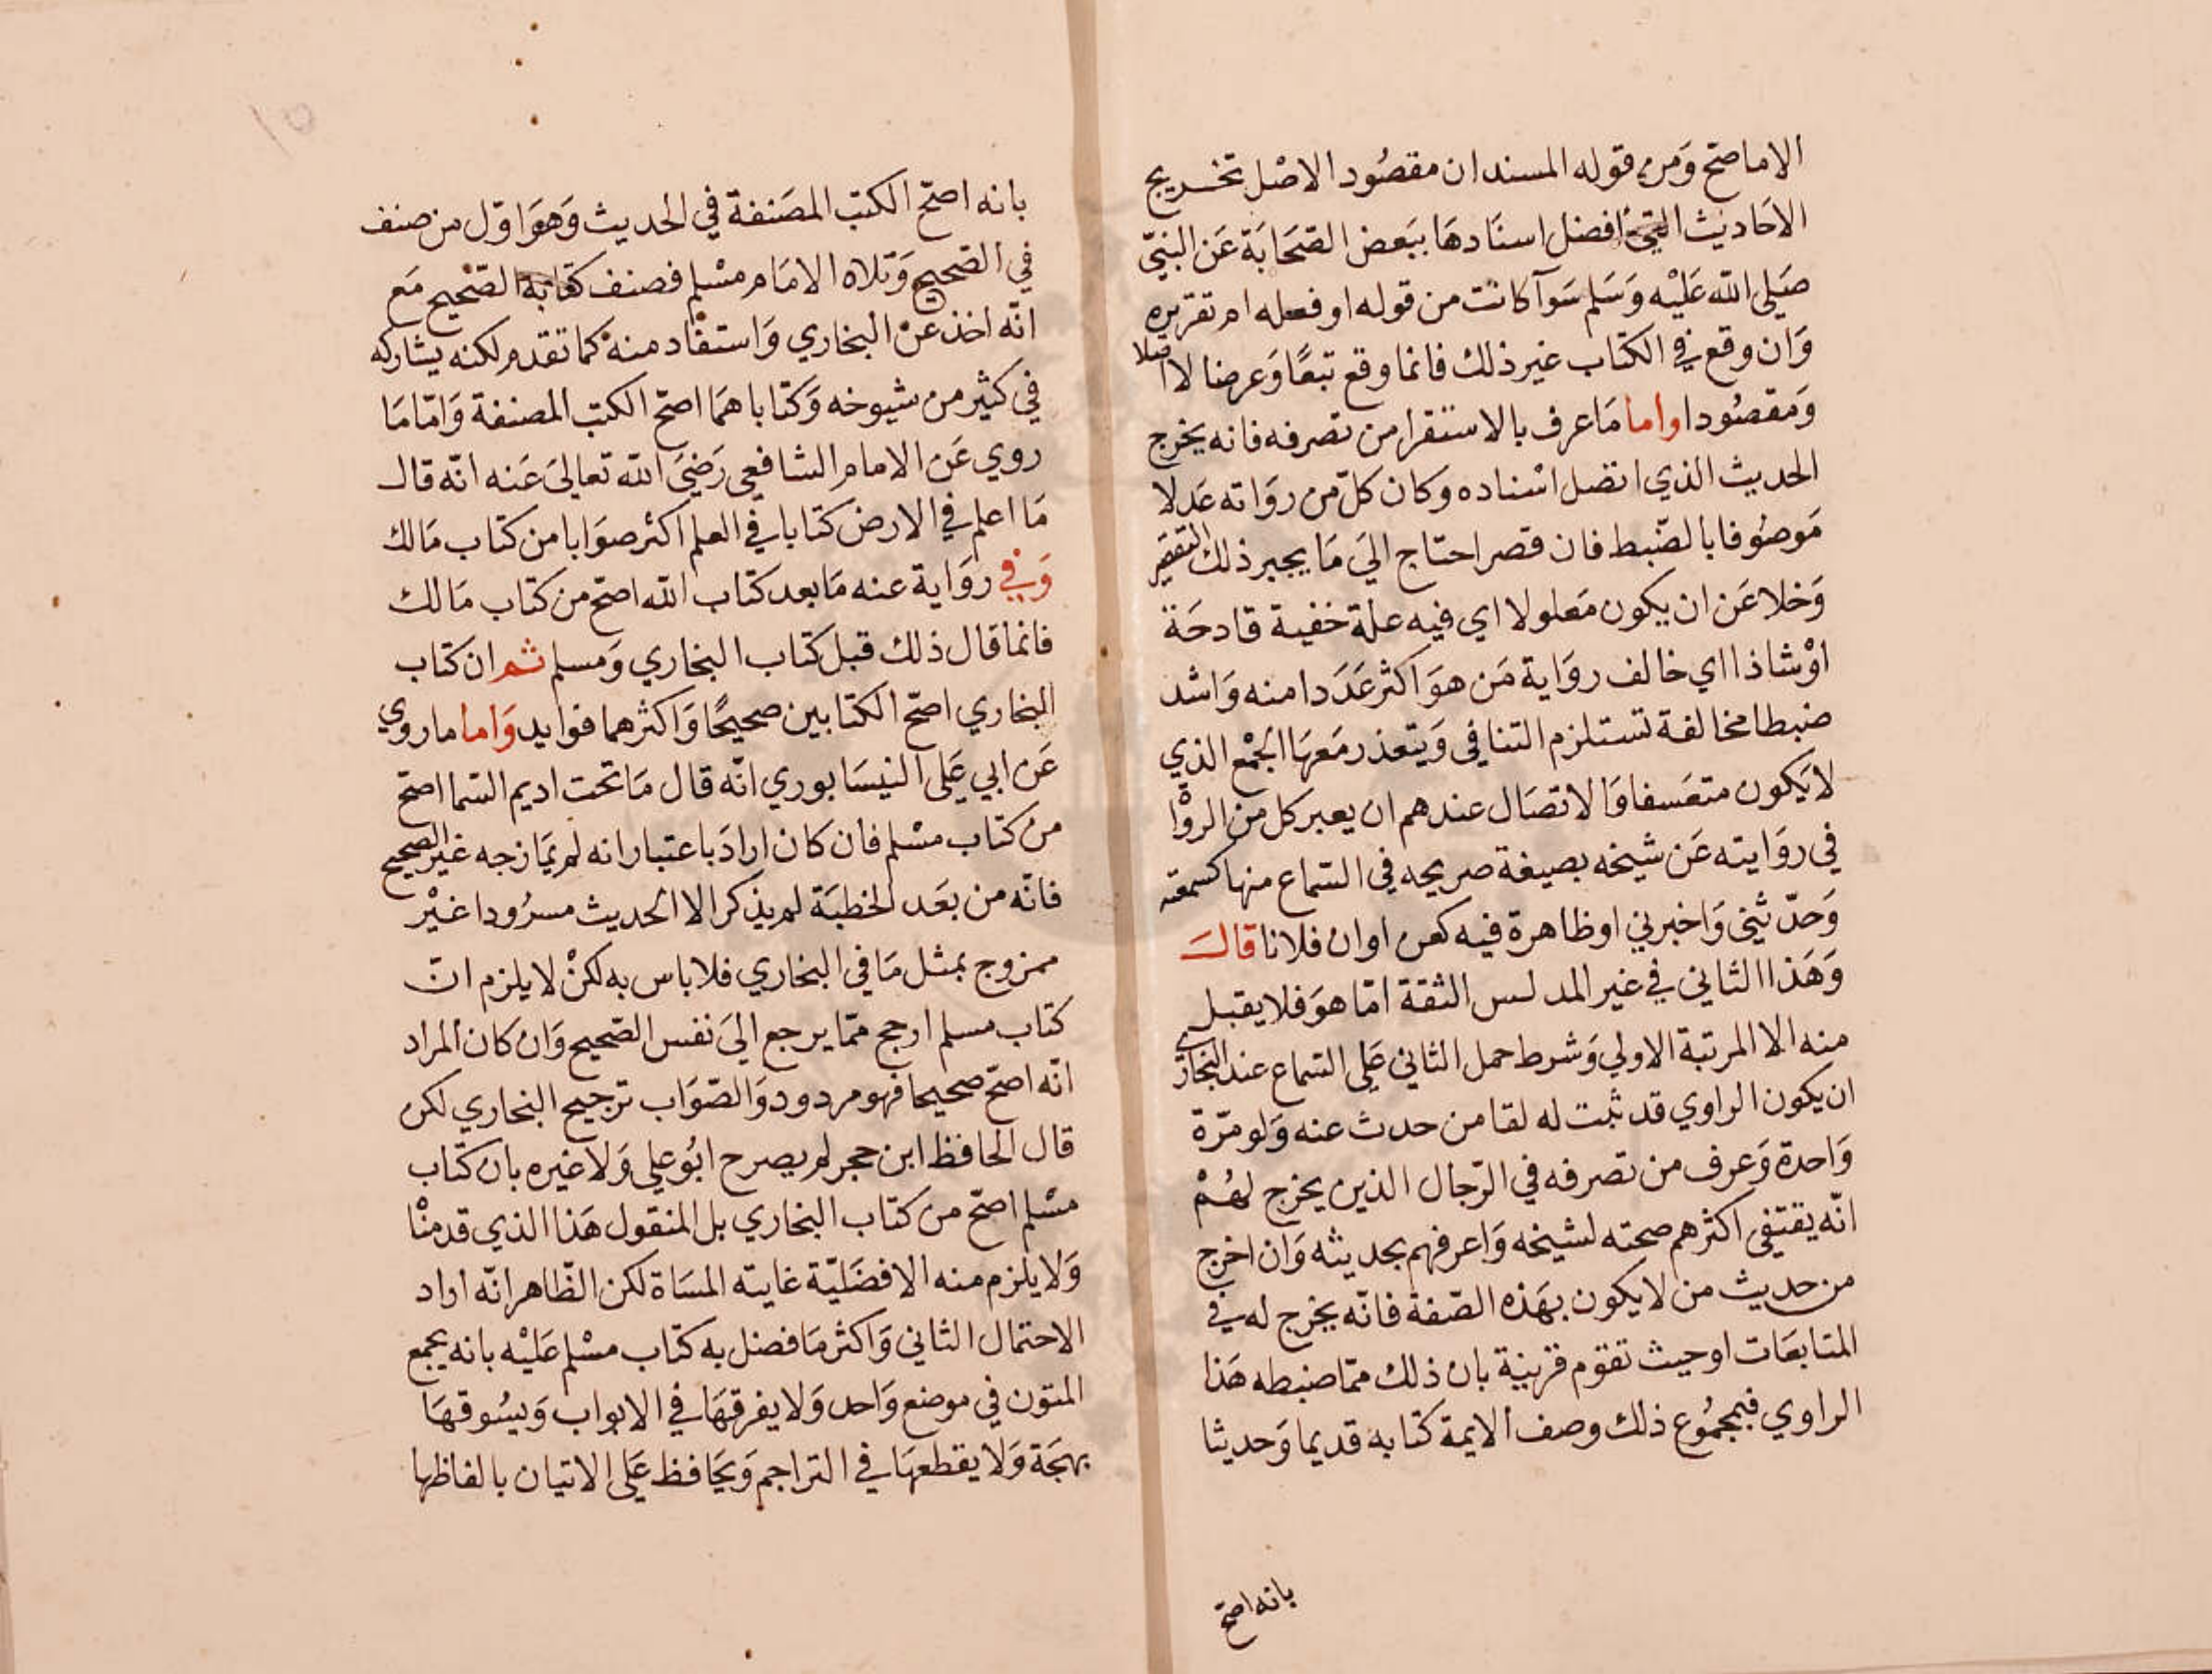 الاماصح وَمن قوله المسند ان مقصُود الاصْل تخريج
الاحَاديث التي افضل اسنَادهَا ببَعض الصّحَابَة عَن النبيّ
صَلي الله عَليْه وَسَلم سَوآ كانت من قوله او فعله ام تقريره
وَان وقع في الكتاب غير ذلك فانما وقع تبعًا وَعرضا لا اصلا
وَمقصُودا واما مَا عرف بالاستقرا من تصرفه فانه يخرج
الحديث الذي اتصل اسْناده وكان كلّ من روَاته عَدلا
مَوصُوفا بالضّبط فان قصر احتاج اليَ مَا يجبر ذلك التقصير
وَخلا عَن ان يكون مَعلولا اي فيه علة خفية قادحَة
اوْشاذا اي خالف روَاية مَن هوَ اكثر عَدَدا منه وَاشد
ضبطا مخالفة تستلزم التنافي وَيتعذر مَعهَا الجْمع الذي
لا يَكون متعَسفا وَالاتصَال عندهم ان يعبر كل من الروْا
في روَايته عَن شيخه بصيغة صريحه في السّماع منها كسمعته
وَحدّثني وَاخبرني او ظاهرة فيه كعن اوان فلانا قالَ
وَهَذا الثاني في غير المدلس الثقة امّا هوَ فلا يقبل
منه الا المرتبة الاولي وَشرط حمل الثاني عَلي السّماع عند البخاري
ان يكون الراوي قد ثبت له لقا من حدث عنه وَلو مرّة
وَاحدة وَعرف من تصرفه في الرّجال الذين يخرج لهُمْ
انّه يقتفي اكثرهم صحته لشيخه وَاعرفهم بحديثه وَان اخرج
من حديث من لا يكون بهَذه الصّفة فانّه يخرج له في
المتابعَات او حيث تقوم قرينة بان ذلك ممّا ضبطه هَذا
الراوي فبمجمُوع ذلك وصف الايمة كتابه قديما وَحديثا
بانه اصحّ
بانه اصحّ الكتب المصَنفة في الحديث وَهوَ اوّل من صنف
في الصّحيح وَتلاه الامَام مسْلم فصنف كتابه الصّحيح مَع
انّه اخذ عَن البخاري وَاستفاد منهْ كما تقدم لكنه يشاركه
في كثير من شيوخه وَكتاباهمَا اصحّ الكتب المصنفة وَامّا مَا
روي عَن الامام الشافعي رَضيَ الله تعاليَ عَنه انّه قال
مَا اعلم في الارض كتابا في العلم اكثر صوَابا من كتاب مَالك
وَفي روَاية عنه مَا بعد كتاب الله اصحّ من كتاب مَالك
فانما قال ذلك قبل كتاب البخاري وَمسلم ثم ان كتاب
البخاري اصحّ الكتابين صحيحًا وَاكثرهما فوايد وَاما ماروي
عَن ابي عَلي النيسَابوري انّه قال مَا تحت اديم السّما اصحّ
من كتاب مسْلم فان كان ارادَ باعتبار انه لم يمَازجه غير الصحيح
فانّه من بعَد الخطبَة لم يذكر الا الحديث مسرُودا غيْر
ممزوج بمثل مَا في البخاري فلا باس به لكنْ لا يلزم انّ
كتاب مسلم ارجح ممّا يرجع اليَ نفس الصّحيح وَان كان المراد
انّه اصحّ صحيحا فهو مردود وَالصّوَاب ترجيح البخاري لكن
قال الحافظ ابن حجر لم يصرح ابُو علي وَلا غيره بان كتاب
مسْلم اصحّ من كتاب البخاري بل المنقول هَذا الذي قدمنْا
وَلا يلزم منه الافضَليّة غايته المسَاة لكن الظّاهر انّه اراد
الاحتمال الثاني وَاكثر مَا فضل به كتاب مسْلم عَليْه بانه يجمع
المتون في موضع وَاحد وَلا يفرقهَا في الابواب وَيسُوقهَا
بهجَة وَلا يقطعهَا في التراجم وَيحَافظ عَلي الاتيان بالفاظها